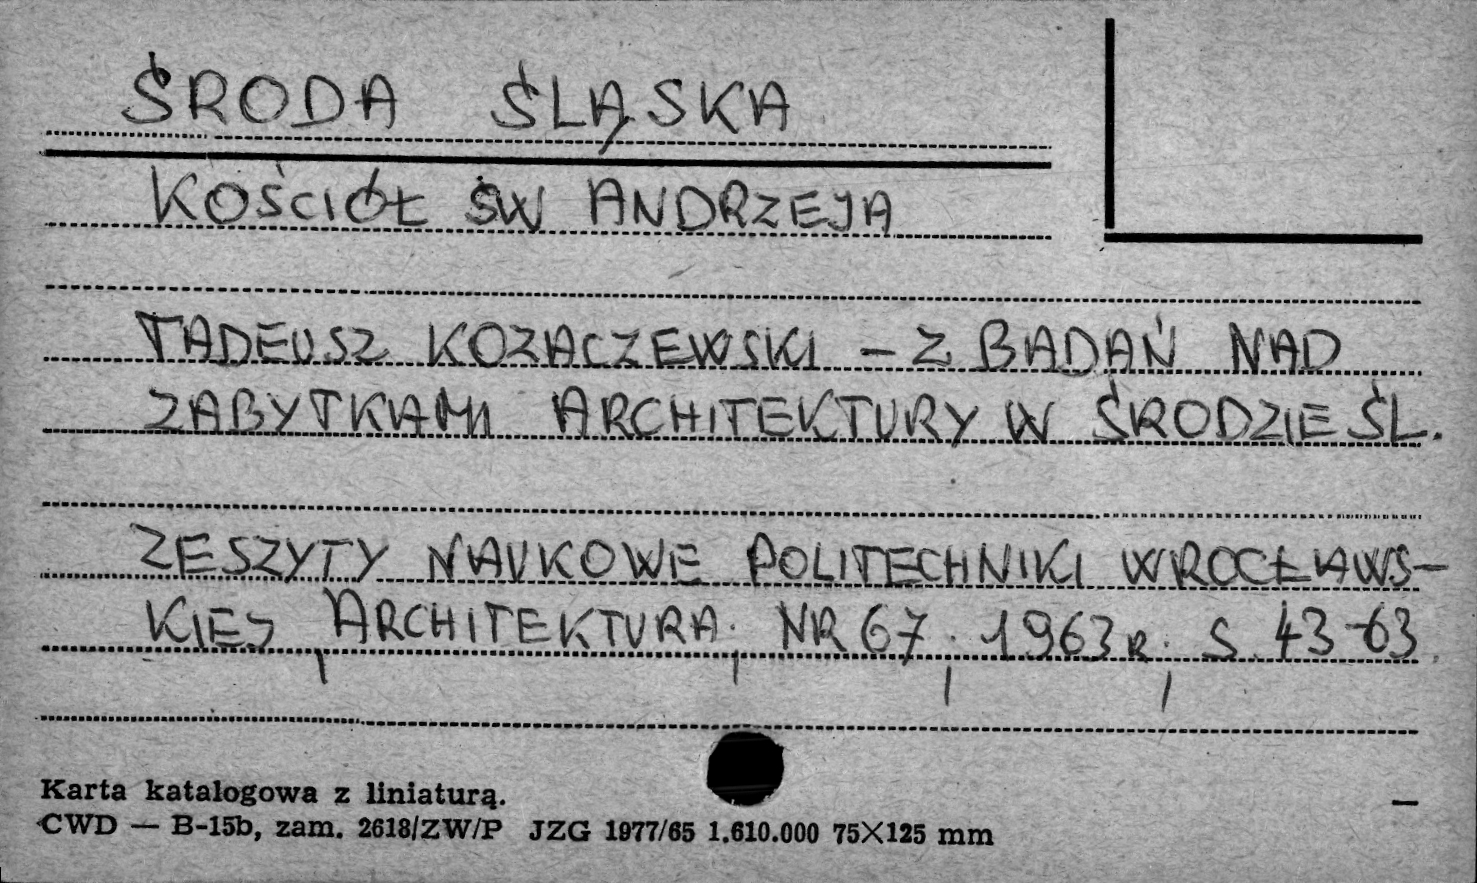 ŚRODA ŚLĄSKA
KOŚCIÓŁ ŚW ANDRZEJA
TADEUSZ KOZACZEWSKI – Z BADAŃ NAD
ZABYTKAMI ARCHITEKTURY W ŚRODZIE ŚL.
ZESZYTY NAUKOWE POLITECHNIKI WROCŁAWS-
KIEJ, ARCHITEKTURA; NR 67, 1963 R; S. 43-63.
Karta katalogowa z liniaturą.
CWD — B-15b, zam. 2618/ZW/P JZG 1977/65 1.610.000 75×125 mm